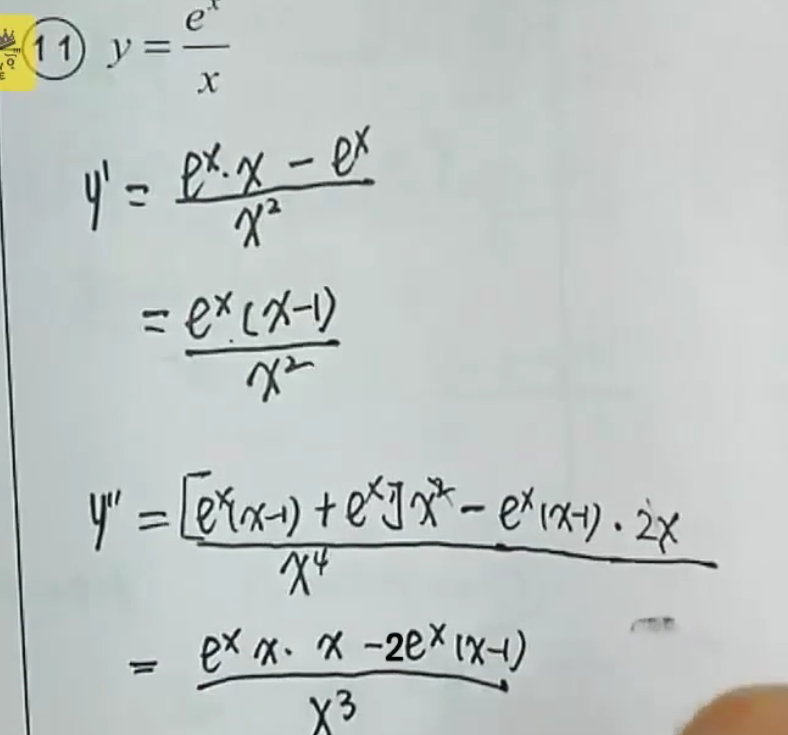 11 y = e^x / x
y' = (e^x · x − e^x) / x²
= e^x (x−1) / x²
y'' = ([e^x(x−1) + e^x] x² − e^x (x−1) · 2x) / x⁴
= (e^x x · x − 2e^x (x−1)) / x³